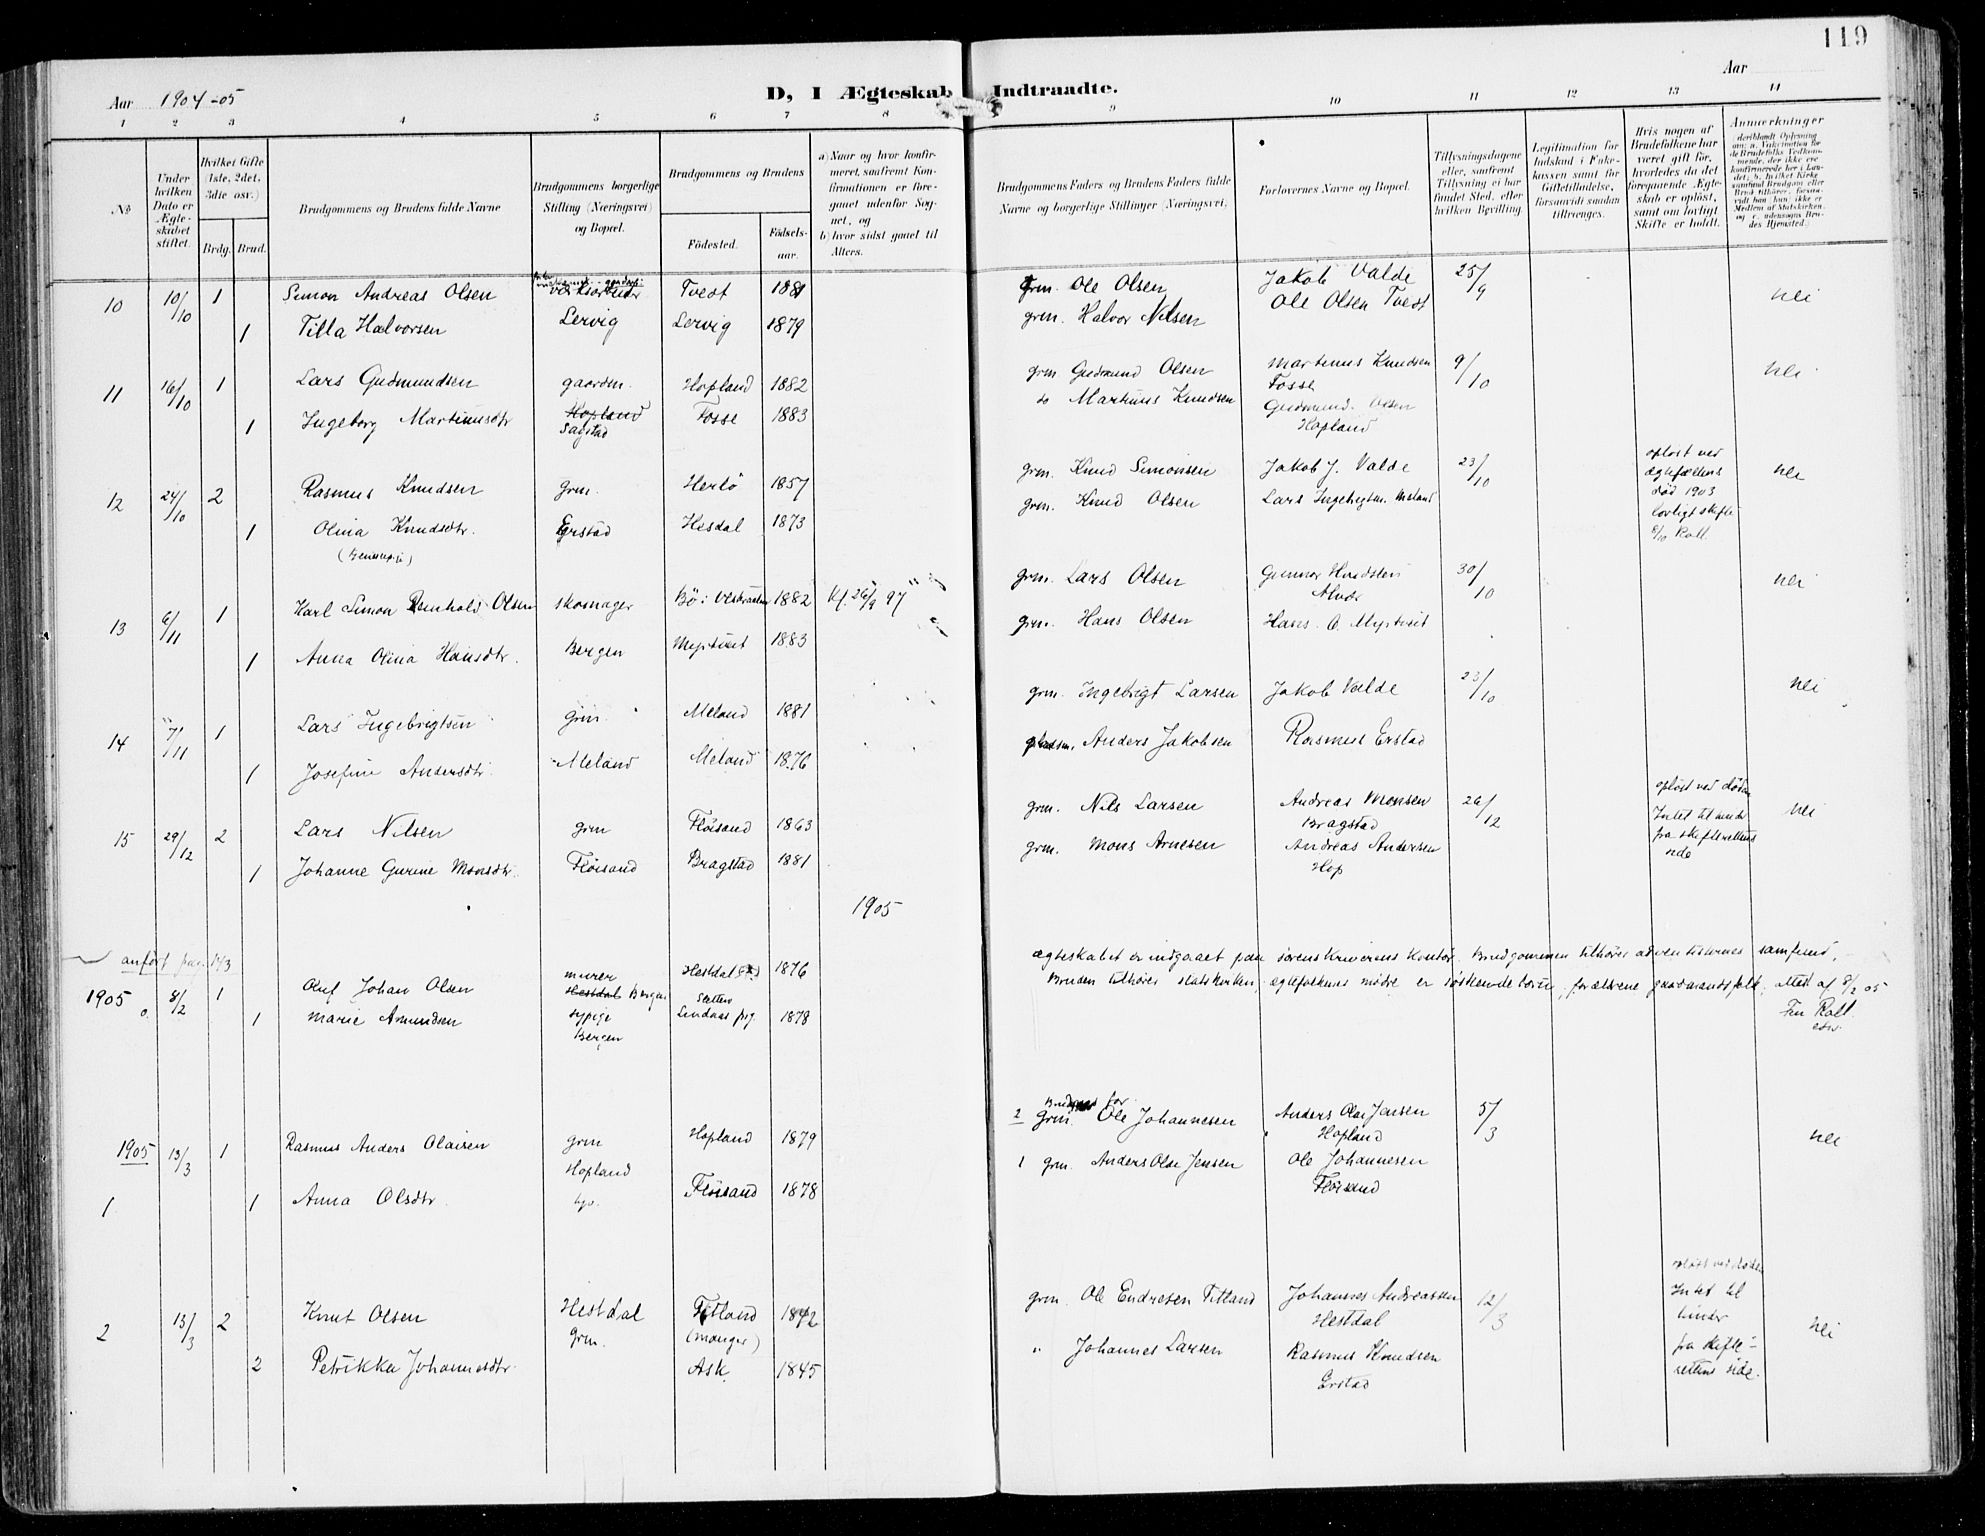 119
Aar 1904-05
D, I Ægteskab Indtraadte.
Aar
1 2 3 4 5 6 7 8 9 10 11 12 13 14
No
Under hvilken Dato er Ægteskabet stiftet.
Hvilket Gifte (1ste, 2det, 3die osv.)
Brdg. Brud.
Brudgommens og Brudens fulde Navne
Brudgommens borgerlige Stilling (Næringsvei) og Bopæl.
Brudgommens og Brudens
Födested. Födsels-aar.
a) Naar og hvor konfirmeret, saafremt Konfirmationen er foregaaet udenfor Sognet, og
b) hvor sidst gaaet til Alters.
Brudgommens Faders og Brudens Faders fulde Navne og borgerlige Stillinger (Næringsvei).
Forlovernes Navne og Bopæl.
Tillysningsdagene eller, saafremt Tillysning ei har fundet Sted, efter hvilken Bevilling.
Legitimation for Indskud i Enkekassen samt for Giftetilladelse, forsaavidt saadan tiltrænges.
Hvis nogen af Brudefolkene har været gift för, hvorledes da det foregaaende Ægteskab er oplöst, samt om lovligt Skifte er holdt.
Anmærkninger
10 10/10 1 Simon Andreas Olsen Tvedt 1881 grm. Ole Olsen Jakob Valde 25/9 nei
Ole Olsen Tvedt
1 Tilla Halvorsen Lervig Lervig 1879 grm. Halvor Nilsen
11 16/10 1 Lars Gudmundsen gaardm. Hopland 1882 grm. Gudmund Olsen Martinus Knudsen 9/10 nei
Fosse
1 Ingeborg Martinusdtr Hopland Fosse 1883 do Martinus Knudsen Gudmund Olsen
Sagstad Hopland
12 24/10 2 Rasmus Knudsen grm. Herlö 1857 grm. Knud Simonsen Jakob J. Valde 23/10 opløst ved nei
ægtefællens
død 1903
lovligt skifte
8/10 Rall.
1 Olina Knudsdtr. Erstad Hesdal 1873 grm. Knud Olsen Lars Ingebrigtsn. Meland
13 6/11 1 Karl Simon Reinhold Olsen skomager Bö i Vesteraalen 1882 Kf. 26/9 97 grm. Lars Olsen Gunnar 30/10 nei
Alvær
1 Anna Olina Hansdtr. Bergen Myrtveit 1883 grm. Hans Olsen Hans O. Myrtveit
14 7/11 1 Lars Ingebrigtsen grm. Meland 1881 grm. Ingebrigt Larsen Jakob Valde 23/10 nei
1 Josefine Andersdtr. Meland Meland 1876 pladsm. Anders Jakobsen Rasmus Erstad
15 29/12 2 Lars Nilsen grm Fløisand 1863 grm. Nils Larsen Andreas Monsen 26/12 opløst ved døden nei
Bragstad Intet til hinder
fra skifterettens
side
1 Johanne Gurine Monsdtr. Fløisand Bragstad 1881 grm. Mons Arnesen Andreas Andersen
Hop
1905
anført pag. 143
ægteskabet er indgaaet paa sorenskriverens kontor. Brudgommen tilhører adventisternes samfund,
Bruden tilhører statskirken, ægtefolkenes mødre er søskendebarn, forældrene gaardmandsfolk, attest af 8/2 05
Rall.
1905 8/2 1 Oluf Johan Olsen murer Hestdal 1876
Hestdal Bergen
1 Marie Amundsen sypige Lindaas prg. 1878
Bergen
1905 13/3 1 Rasmus Anders Olaisen grm Hopland 1879 2 Brudgoms far
grm. Ole Johannesen Anders Olai Jensen 5/3 nei
Hopland Hopland
1 1 Anna Olsdtr. Fløisand 1878 1 grm. Anders Olai Jensen Ole Johannesen
Fløisand
2 13/3 2 Knut Olsen Hestdal Titland 1842 grm. Ole Endresen Titland Johannes Andreassen 12/3 opløst ved døden nei
grm. (Manger) Hestdal Intet til
hinder
2 Petrikka Johannesdtr. Ask 1845 " Johannes Larsen Rasmus Knudsen fra skifte-
Erstad rettens side.